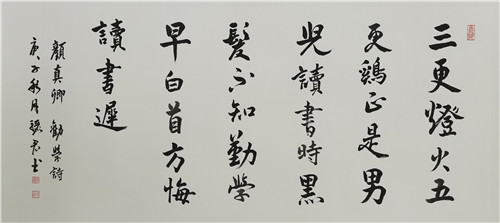 三更燈火五
更鷄正是男
兒讀書時黑
髮不知勤學
早白首方悔
讀書遲
顏真卿 勸學詩
庚子秋月張